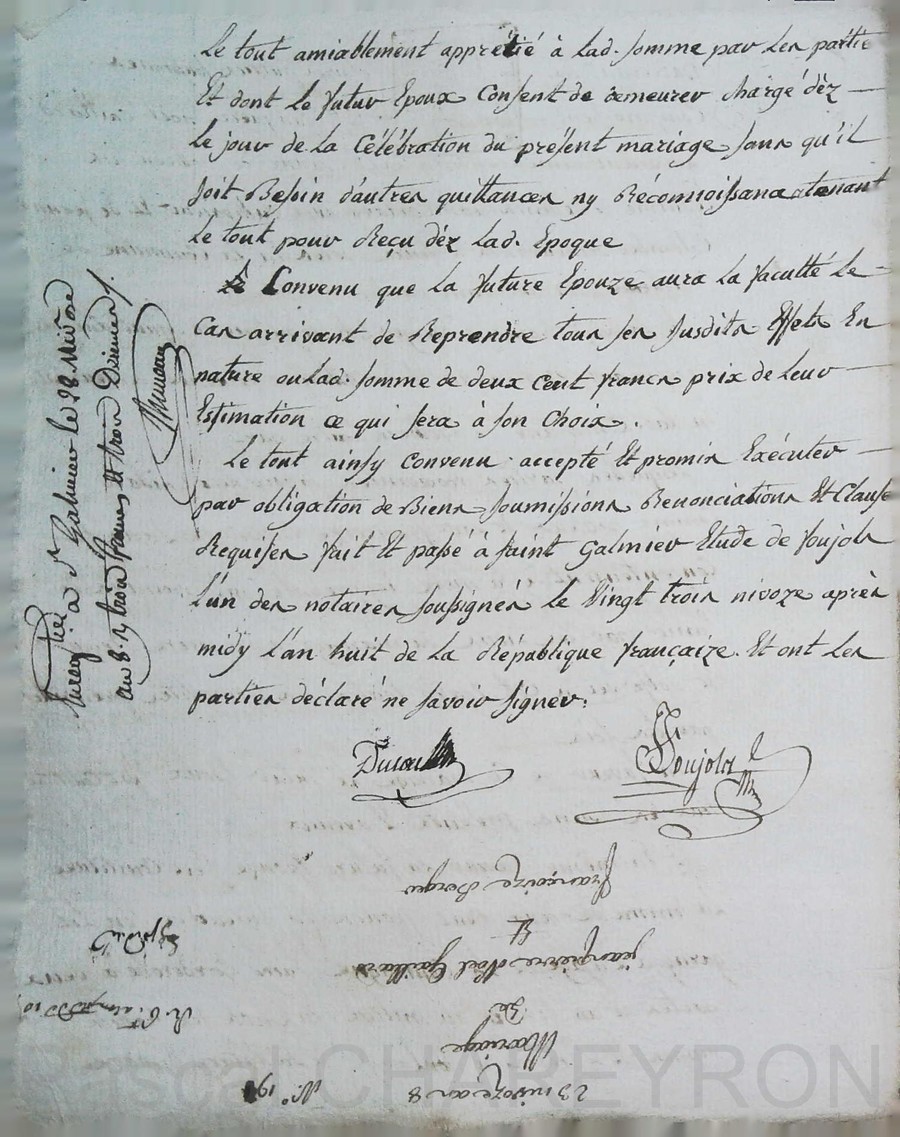 Le tout amiablement apprétié à Lad. somme par les partie
Et dont le futur Epoux Consent de demeurer chargé déz
Le jour de la Célébration du présent mariage sans qu'il
soit Besoin d'autres quittances ny Réconnoissance, tenant
Le tout pour Reçu déz Lad. Epoque
Convenu que la future Epouze aura la faculté Le
Cas arrivant de Reprendre tous ses susdits Effets En
nature ou Lad. somme de deux Cent francs prix de Leur
Estimation ce qui sera à son Choix.
Le tout ainsy Convenu accepté Et promis Exécuter
par obligation de Biens soumissions Renonciations Et Clause
Requises fait Et passé à saint Galmier Etude de soujols
L'un des notaires soussignés le Vingt trois nivoze après
midy L'an huit de La République françaize. Et ont Les
parties déclaré ne savoir signer.
Soujols
Enregistré à St Galmier le 28 Nivose
an 8. r trois francs et trois Décimes
françoize Berger
Et
jean pierre Noël Gaillard
De
Mariage
23 nivoze an 8
N.° 19
Pascal CHAREYRON